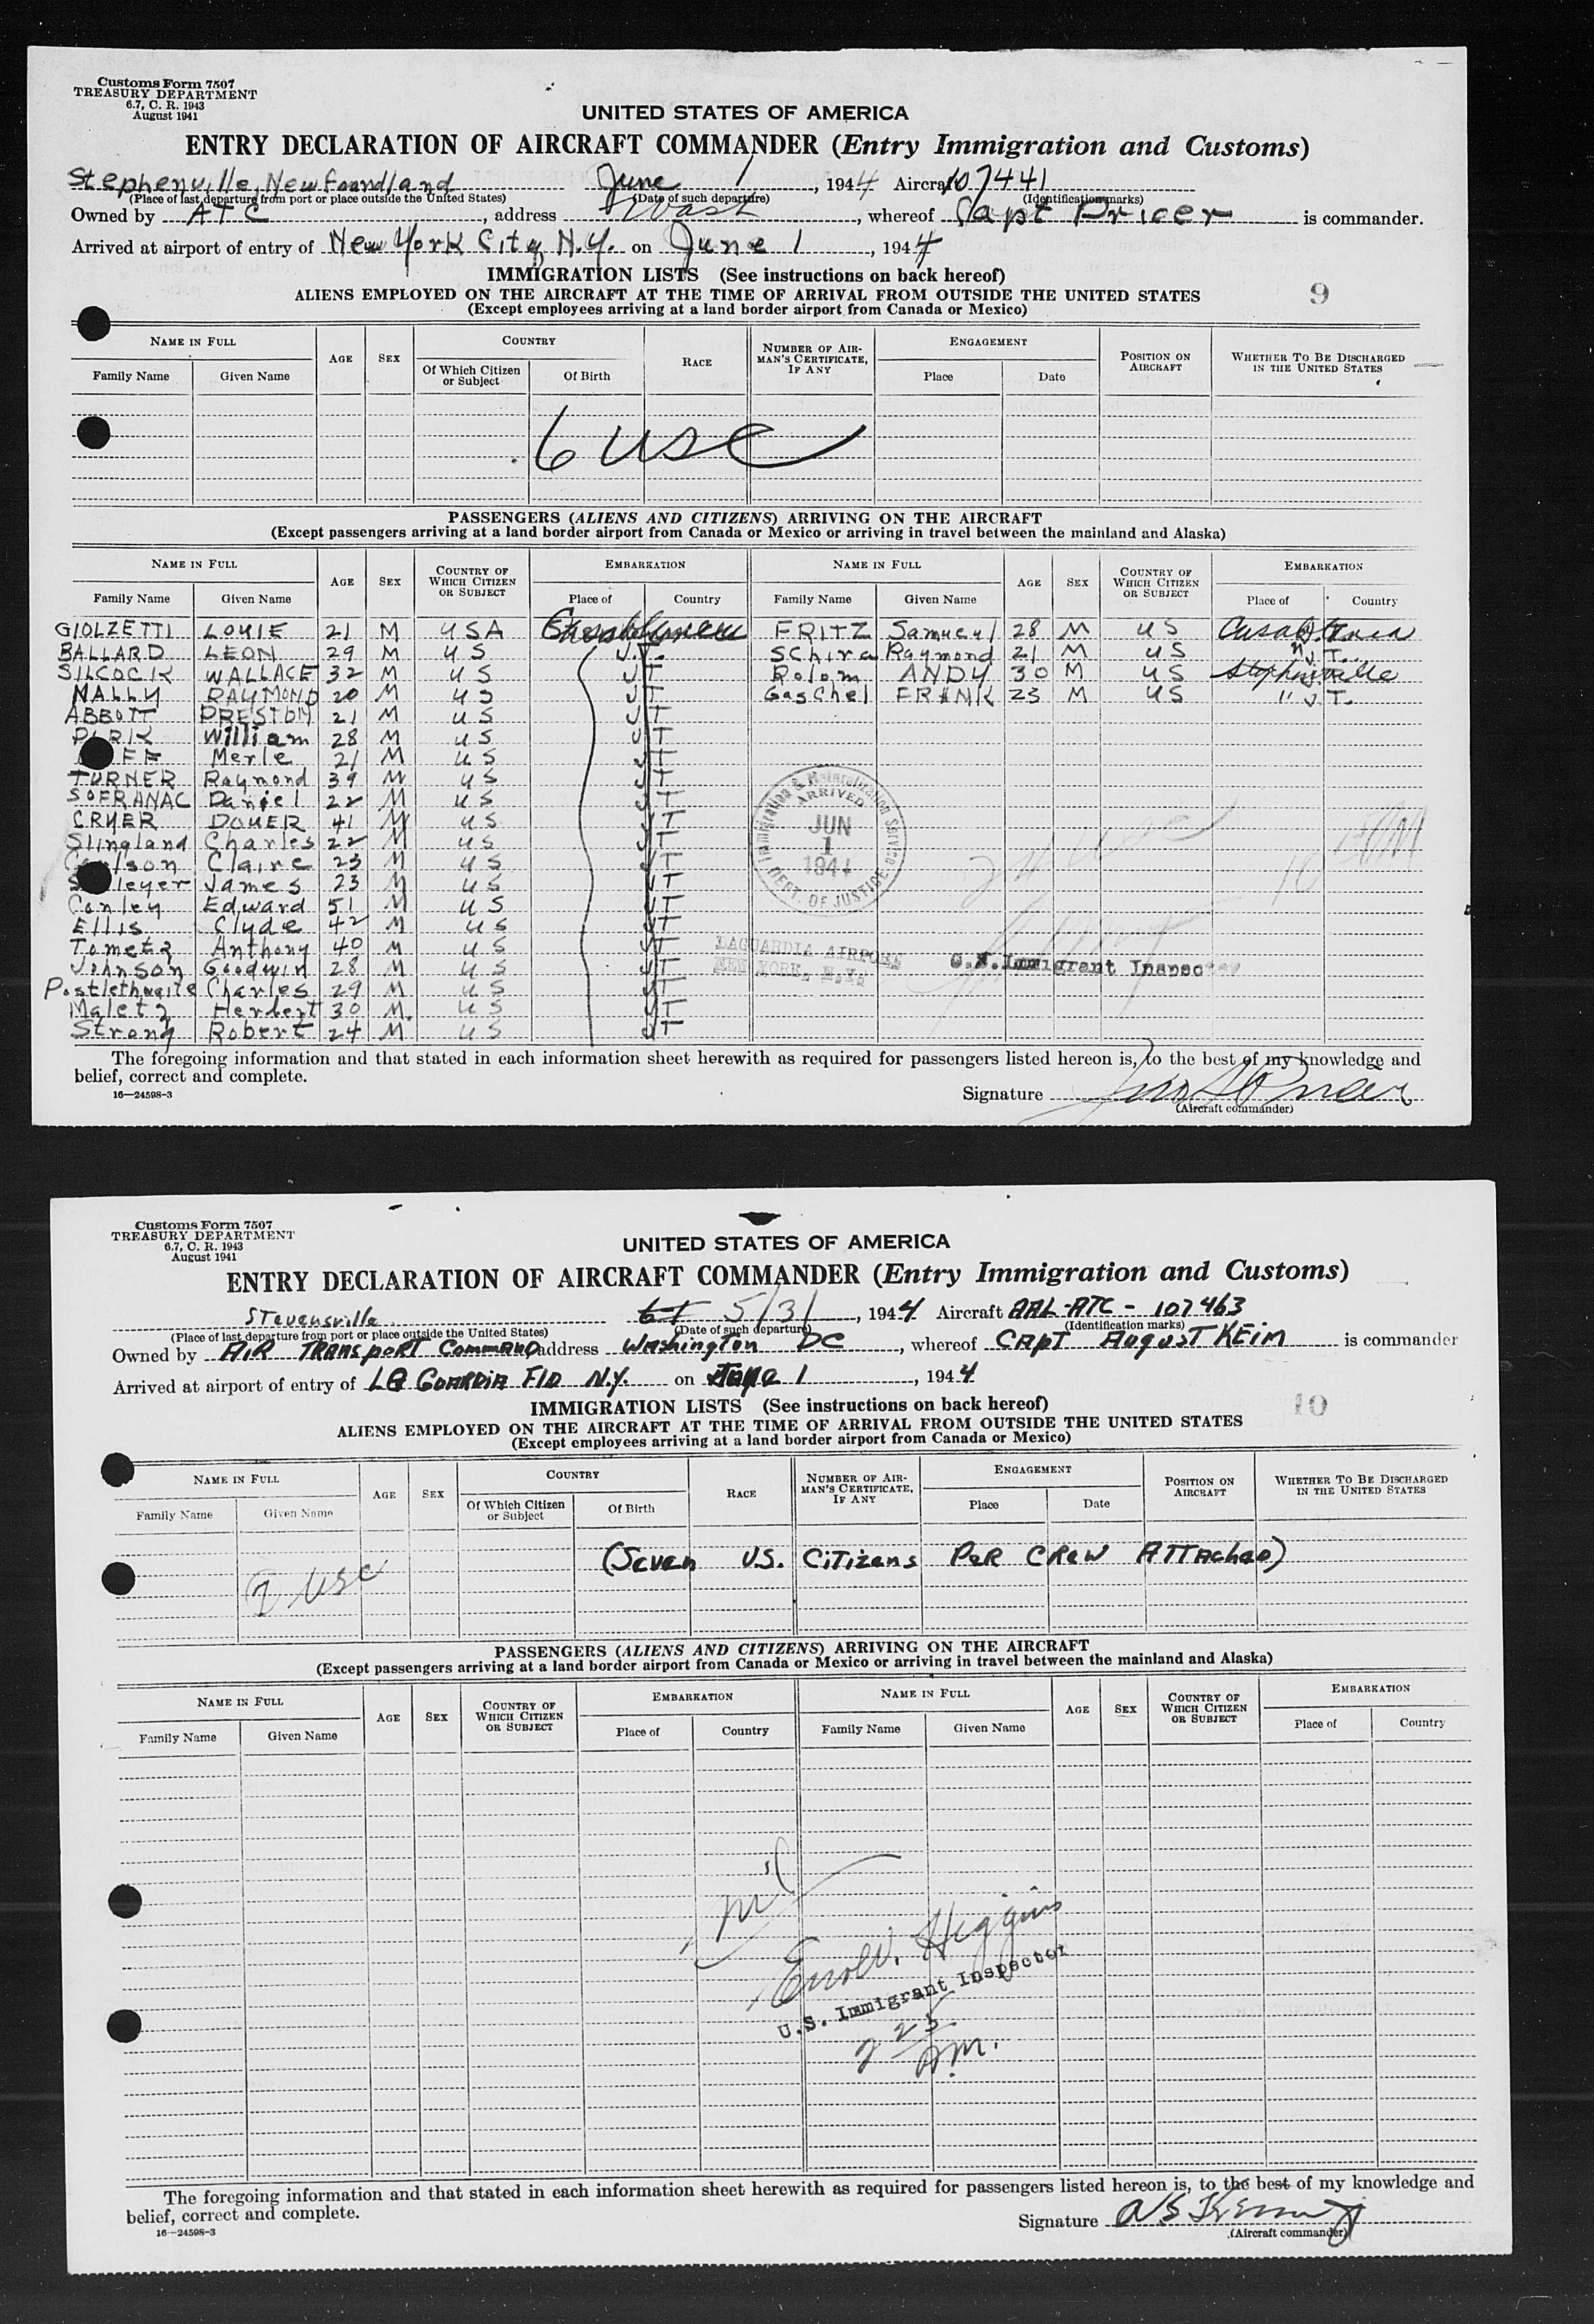 Customs Form 7507
TREASURY DEPARTMENT
6.7, C. R. 1943
August 1941
UNITED STATES OF AMERICA
ENTRY DECLARATION OF AIRCRAFT COMMANDER (Entry Immigration and Customs)
Stephenville, Newfoundland June 1, 1944 Aircraft 107441
(Place of last departure from port or place outside the United States) (Date of such departure) (Identification marks)
Owned by ATC, address Wash, whereof Capt Pricer is commander.
Arrived at airport of entry of New York City, N.Y. on June 1, 1944
IMMIGRATION LISTS (See instructions on back hereof)
9
ALIENS EMPLOYED ON THE AIRCRAFT AT THE TIME OF ARRIVAL FROM OUTSIDE THE UNITED STATES
(Except employees arriving at a land border airport from Canada or Mexico)
NAME IN FULL AGE SEX COUNTRY RACE NUMBER OF AIRMAN'S CERTIFICATE, IF ANY ENGAGEMENT POSITION ON AIRCRAFT WHETHER TO BE DISCHARGED IN THE UNITED STATES
Family Name Given Name Of Which Citizen or Subject Of Birth Place Date
6 USC
PASSENGERS (ALIENS AND CITIZENS) ARRIVING ON THE AIRCRAFT
(Except passengers arriving at a land border airport from Canada or Mexico or arriving in travel between the mainland and Alaska)
NAME IN FULL AGE SEX COUNTRY OF WHICH CITIZEN OR SUBJECT EMBARKATION NAME IN FULL AGE SEX COUNTRY OF WHICH CITIZEN OR SUBJECT EMBARKATION
Family Name Given Name Place of Country Family Name Given Name Place of Country
GIOLZETTI LOUIE 21 M USA FRITZ Samuel 28 M US
BALLARD LEON 29 M US J.T. Schira Raymond 21 M US " J.T.
SILCOCK WALLACE 32 M US JT Rolom ANDY 30 M US Stephenville
NALLY RAYMOND 20 M US JT Gaschel FRANK 23 M US " J.T.
ABBOTT PRESTON 21 M US JT
William 28 M US JT
FF Merle 21 M US JT
TURNER Raymond 39 M US JT
SOFRANAC Daniel 22 M US JT
CRYER DOUER 41 M US JT
Slingland Charles 22 M US JT
Claire 23 M US JT
leyer James 23 M US JT
Conley Edward 51 M US JT
Ellis Clyde 42 M US JT
Tometz Anthony 40 M US JT
Johnson Goodwin 28 M US JT
Postlethwaite Charles 29 M US JT
Maletz Herbert 30 M. US JT
Strong Robert 24 M US JT
Immigration & Naturalization Service
ARRIVED
JUN
1
1944
DEPT. OF JUSTICE
24 USC
10 AM
LAGUARDIA AIRPORT
NEW YORK, N.Y.
U.S. Immigrant Inspector
The foregoing information and that stated in each information sheet herewith as required for passengers listed hereon is, to the best of my knowledge and
belief, correct and complete.
16—24598-3
Signature
(Aircraft commander)
Customs Form 7507
TREASURY DEPARTMENT
6.7, C. R. 1943
August 1941
UNITED STATES OF AMERICA
ENTRY DECLARATION OF AIRCRAFT COMMANDER (Entry Immigration and Customs)
Stevensville 5/31, 1944 Aircraft AAL-ATC-107463
(Place of last departure from port or place outside the United States) (Date of such departure) (Identification marks)
Owned by AIR TRANSPORT COMMAND address Washington DC, whereof CAPT AUGUST KEIM is commander
Arrived at airport of entry of LA GUARDIA FLD N.Y. on June 1, 1944
IMMIGRATION LISTS (See instructions on back hereof)
10
ALIENS EMPLOYED ON THE AIRCRAFT AT THE TIME OF ARRIVAL FROM OUTSIDE THE UNITED STATES
(Except employees arriving at a land border airport from Canada or Mexico)
NAME IN FULL AGE SEX COUNTRY RACE NUMBER OF AIRMAN'S CERTIFICATE, IF ANY ENGAGEMENT POSITION ON AIRCRAFT WHETHER TO BE DISCHARGED IN THE UNITED STATES
Family Name Given Name Of Which Citizen or Subject Of Birth Place Date
(Seven U.S. Citizens Per Crew Attached)
7 USC
PASSENGERS (ALIENS AND CITIZENS) ARRIVING ON THE AIRCRAFT
(Except passengers arriving at a land border airport from Canada or Mexico or arriving in travel between the mainland and Alaska)
NAME IN FULL AGE SEX COUNTRY OF WHICH CITIZEN OR SUBJECT EMBARKATION NAME IN FULL AGE SEX COUNTRY OF WHICH CITIZEN OR SUBJECT EMBARKATION
Family Name Given Name Place of Country Family Name Given Name Place of Country
Nil
Errol V. Higgins
U.S. Immigrant Inspector
2 25 AM.
The foregoing information and that stated in each information sheet herewith as required for passengers listed hereon is, to the best of my knowledge and
belief, correct and complete.
16—24598-3
Signature
(Aircraft commander)